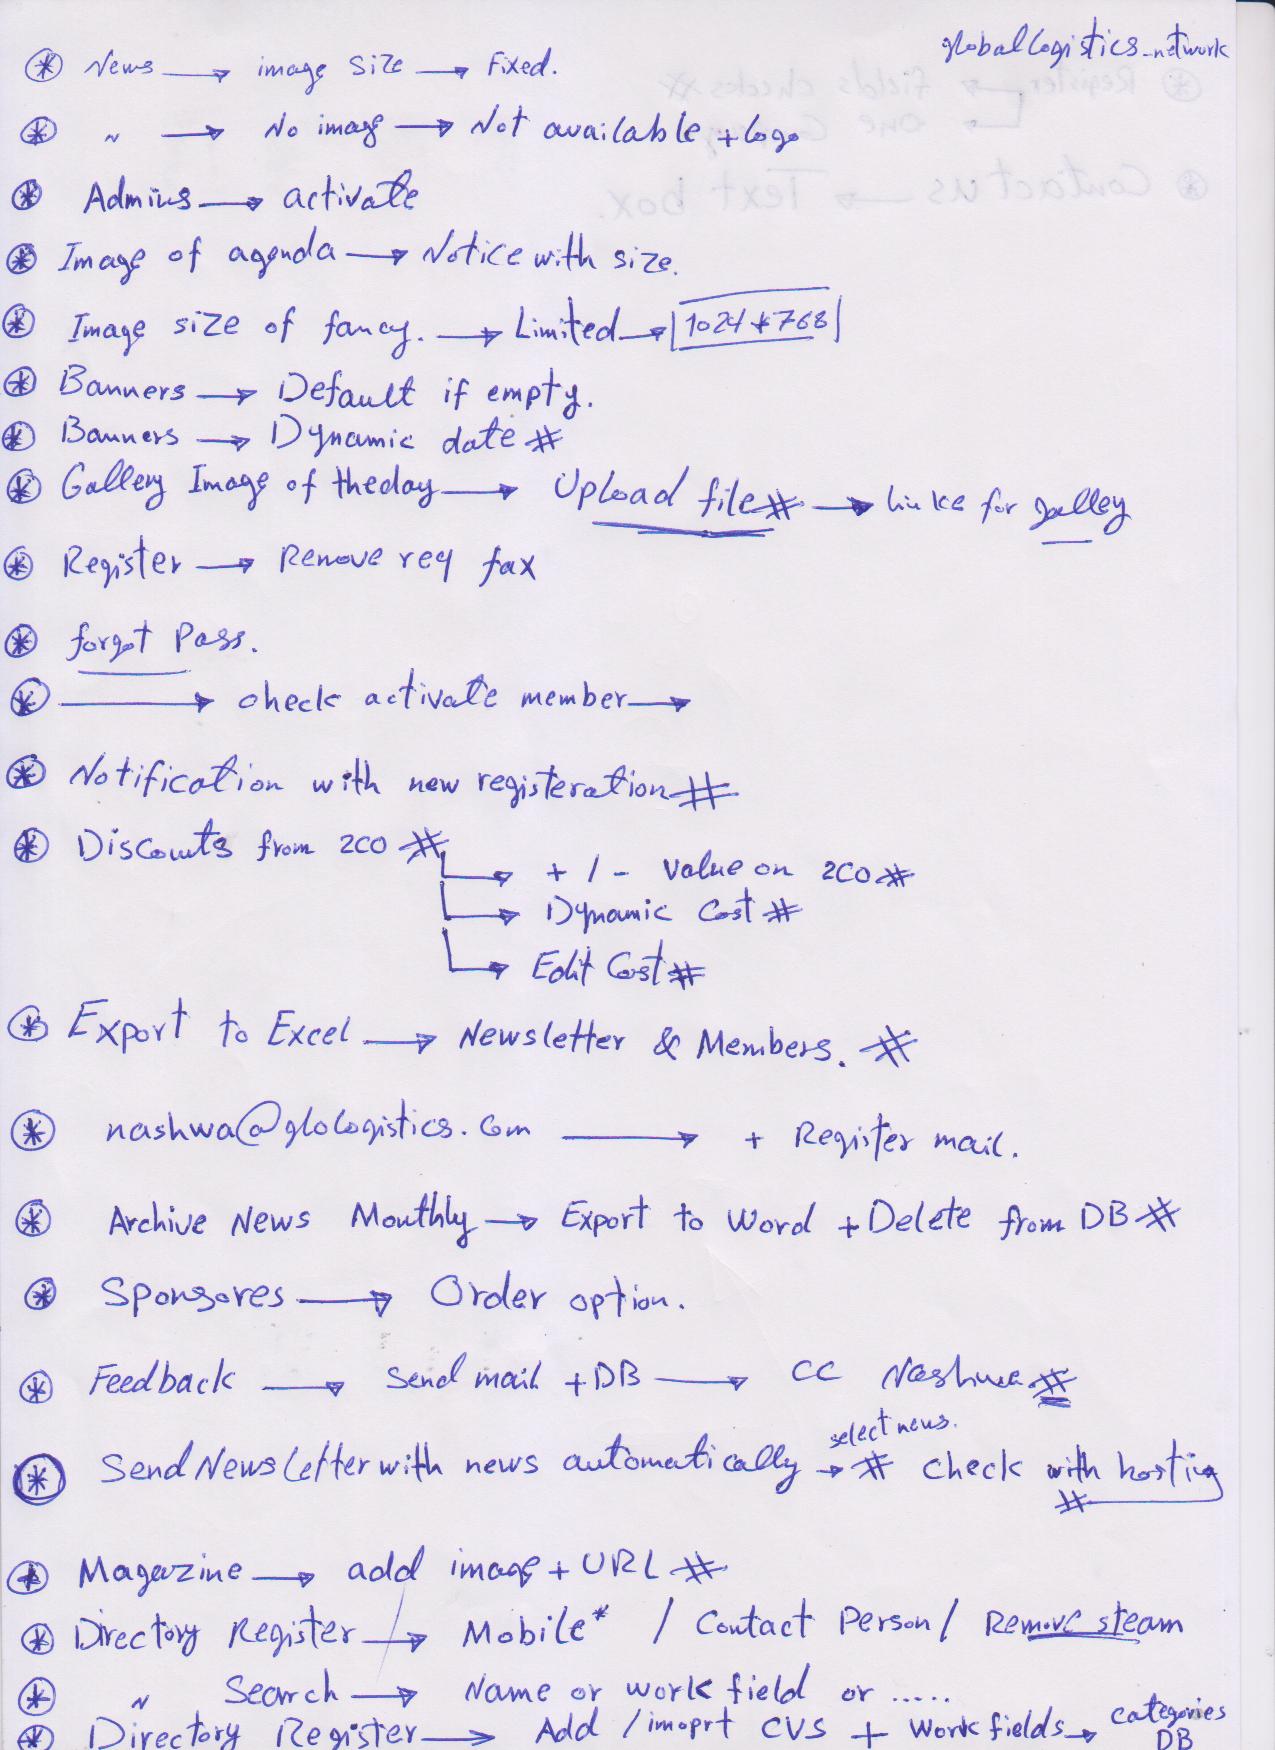 globallogistics-network
⊛ News → image size → Fixed.
⊛ " → No image → Not available + logo
⊛ Admins → activate
⊛ Image of agenda → Notice with size.
⊛ Image size of fancy. → Limited → |1024*768|
⊛ Banners → Default if empty.
⊛ Banners → Dynamic date #
⊛ Gallery Image of theday → Upload file # → links for galley
⊛ Register → Remove req fax
⊛ forgot Pass.
⊛ → check activate member →
⊛ Notification with new registeration #
⊛ Discounts from 2CO #
→ + / - Value on 2CO #
→ Dynamic Cost #
→ Edit Cost #
⊛ Export to Excel → Newsletter & Members. #
⊛ nashwa@glologistics.com → + Register mail.
⊛ Archive News Monthly → Export to Word + Delete from DB #
⊛ Sponsores → Order option.
⊛ Feedback → Send mail + DB → CC Nashwa #
select news.
⊛ Send NewsLetter with news automatically → # check with hosting
#
⊛ Magazine → add image + URL #
⊛ Directory Register → Mobile* / Contact Person / Remove steam
⊛ " Search → Name or work field or .....
⊛ Directory Register → Add / imoprt CVS + Work fields → categories
DB